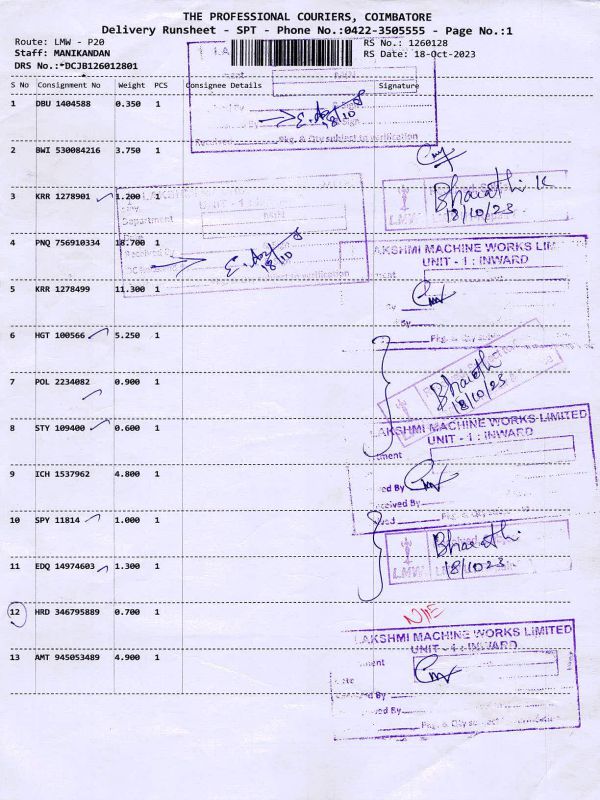 THE PROFESSIONAL COURIERS, COIMBATORE
Delivery Runsheet - SPT - Phone No.:0422-3505555 - Page No.:1
Route: LMW - P20
RS No.: 1260128
Staff: MANIKANDAN
RS Date: 18-Oct-2023
DRS No.:*DCJB126012801
S No Consignment No Weight PCS Consignee Details Signature
1 DBU 1404588 0.350 1
18/10
Pkg. & Qty subject to verification
2 BWI 530084216 3.750 1
3 KRR 1278901 1.200 1
Bharathi K
18/10/23
LMW
Department
4 PNQ 756910334 18.700 1
18/10
LAKSHMI MACHINE WORKS LIM
UNIT - 1 : INWARD
5 KRR 1278499 11.300 1
By
6 HGT 100566 5.250 1
7 POL 2234082 0.900 1
Bharathi
18/10/23
8 STY 109400 0.600 1
LAKSHMI MACHINE WORKS LIMITED
UNIT - 1 : INWARD
9 ICH 1537962 4.800 1
10 SPY 11814 1.000 1
Bharathi
18/10/23
LMW
11 EDQ 14974603 1.300 1
12 HRD 346795889 0.700 1
LAKSHMI MACHINE WORKS LIMITED
UNIT - 1 : INWARD
13 AMT 945053489 4.900 1